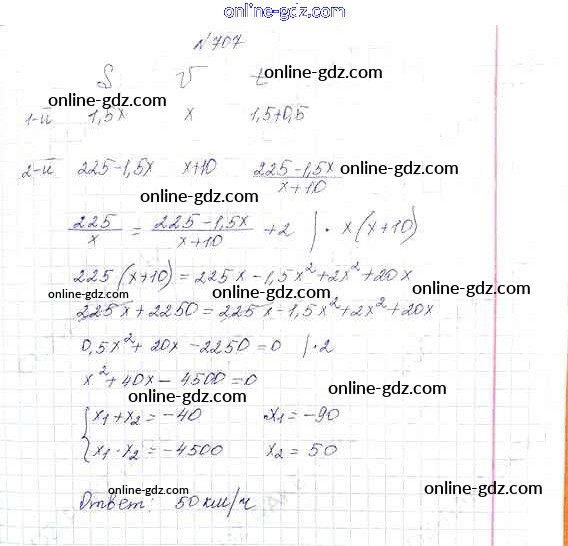 online-gdz.com
N 707
S v t online-gdz.com
online-gdz.com
1-й 1,5x x 1,5+0,5
2-й 225-1,5x x+10 (225-1,5x)/(x+10) online-gdz.com
online-gdz.com
225/x = (225-1,5x)/(x+10) + 2 | · x(x+10)
online-gdz.com
225(x+10) = 225x - 1,5x² + 2x² + 20x
online-gdz.com online-gdz.com online-gdz.com
225x + 2250 = 225x - 1,5x² + 2x² + 20x
0,5x² + 20x - 2250 = 0 | · 2
online-gdz.com
x² + 40x - 4500 = 0
online-gdz.com online-gdz.com
{ x₁ + x₂ = -40 x₁ = -90
online-gdz.com
x₁ · x₂ = -4500 x₂ = 50
online-gdz.com online-gdz.com
Ответ: 50 км/ч